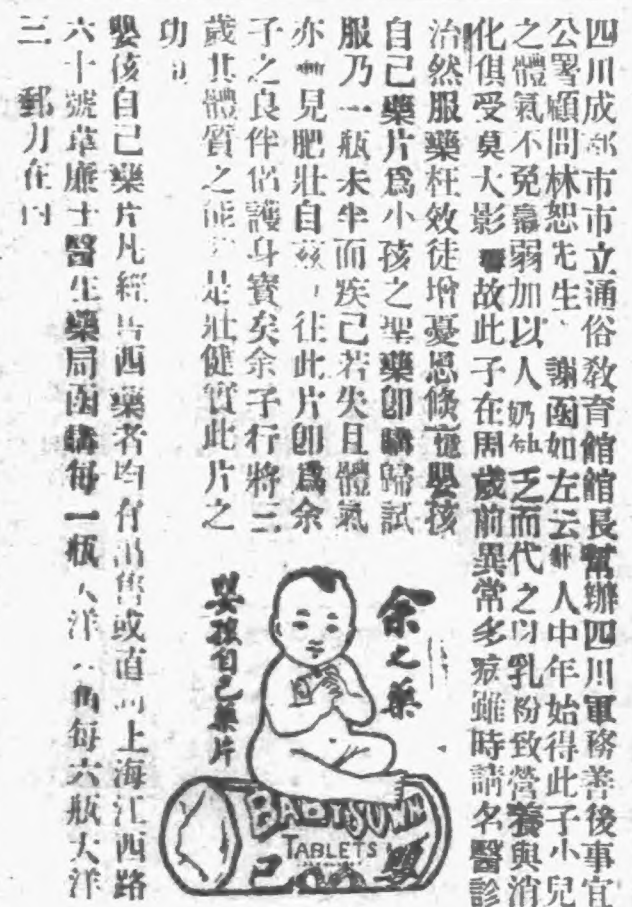 四川成都市市立通俗教育館館長幫辦四川軍務善後事宜
公署顧問林恕先生 謝函如左云 人中年始得此子小兒
之體氣不免羸弱加以人奶 乏而代之以乳粉致營養與消
化俱受莫大影 故此子在周歲前異常多疾雖時請名醫診
治然服藥枉效徒增憂思倐 嬰孩
自己藥片爲小孩之聖藥卽購歸試
服乃一瓶未半而疾已若失且體氣
亦 見肥壯自茲 往此片卽爲余
子之良伴侶護身寶矣余子行將三
歲其體質之能 是壯健實此片之
功
嬰孩自己藥片凡經售西藥者均有出售或直向上海江西路
六十號韋廉士醫生藥局函購每一瓶大洋 角每六瓶大洋
三 郵力在內
余之藥
嬰孩自己藥片
BABY'S OWN
TABLETS
嬰
己